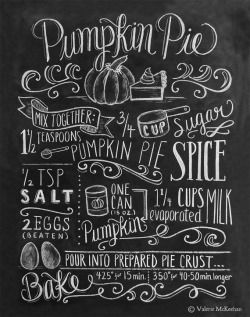 Pumpkin Pie
MIX TOGETHER:
3/4 CUP Sugar
1 1/2 TEASPOONS
PUMPKIN PIE SPICE
1/2 TSP SALT
ONE CAN (15 OZ.) Pumpkin
1 1/4 CUPS evaporated MILK
2 EGGS (BEATEN)
POUR INTO PREPARED PIE CRUST...
Bake 425° for 15 min. 350° for 40-50 min. longer
© Valerie McKeehan